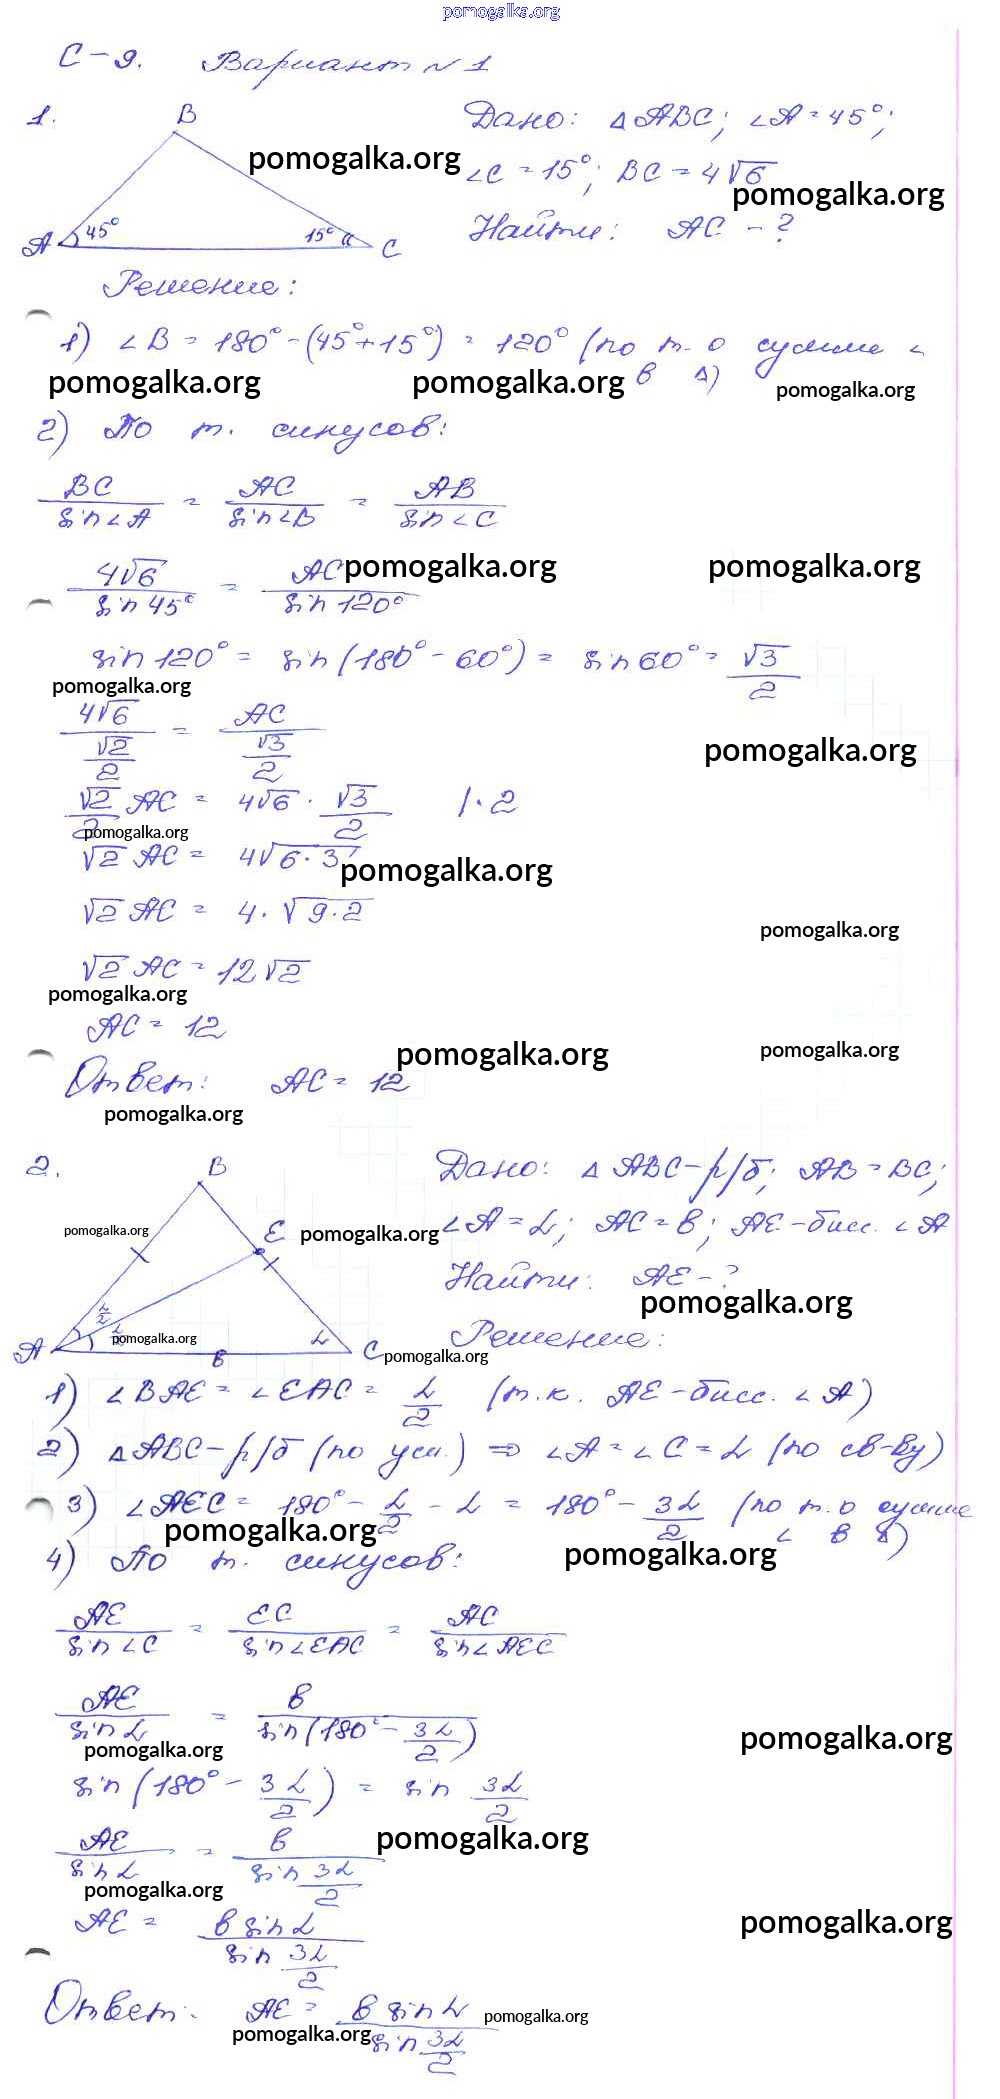 pomogalka.org
С-9. Вариант №1
1.
B
45°
15°
A
C
pomogalka.org
Дано: △ABC; ∠A = 45°;
∠C = 15°; BC = 4√6
pomogalka.org
Найти: AC - ?
Решение:
1) ∠B = 180° - (45° + 15°) = 120° (по т. о сумме ∠
в △)
pomogalka.org pomogalka.org pomogalka.org
2) По т. синусов:
BC/sin∠A = AC/sin∠B = AB/sin∠C
4√6/sin 45° = AC/sin 120°
pomogalka.org pomogalka.org
sin 120° = sin(180° - 60°) = sin 60° = √3/2
pomogalka.org
4√6/(√2/2) = AC/(√3/2)
pomogalka.org
√2/2 AC = 4√6 · √3/2 | · 2
pomogalka.org
√2 AC = 4√(6·3)
pomogalka.org
√2 AC = 4 · √(9·2)
pomogalka.org
√2 AC = 12√2
pomogalka.org
AC = 12
pomogalka.org pomogalka.org
Ответ: AC = 12
pomogalka.org
2.
B
E
A
C
α/2
α
в
pomogalka.org
pomogalka.org
pomogalka.org
Дано: △ABC - р/б; AB = BC;
∠A = α; AC = в; AE - бисс. ∠A
Найти: AE - ?
pomogalka.org
Решение:
pomogalka.org
1) ∠BAE = ∠EAC = α/2 (т.к. AE - бисс. ∠A)
2) △ABC - р/б (по усл.) ⇒ ∠A = ∠C = α (по св-ву)
3) ∠AEC = 180° - α/2 - α = 180° - 3α/2 (по т. о сумме
∠ в △)
pomogalka.org pomogalka.org
4) По т. синусов:
AE/sin∠C = EC/sin∠EAC = AC/sin∠AEC
AE/sin α = в/sin(180° - 3α/2)
pomogalka.org pomogalka.org
sin(180° - 3α/2) = sin 3α/2
pomogalka.org
AE/sin α = в/sin 3α/2
pomogalka.org
AE = в sin α/sin 3α/2
pomogalka.org
Ответ: AE = в sin α/sin 3α/2
pomogalka.org
pomogalka.org